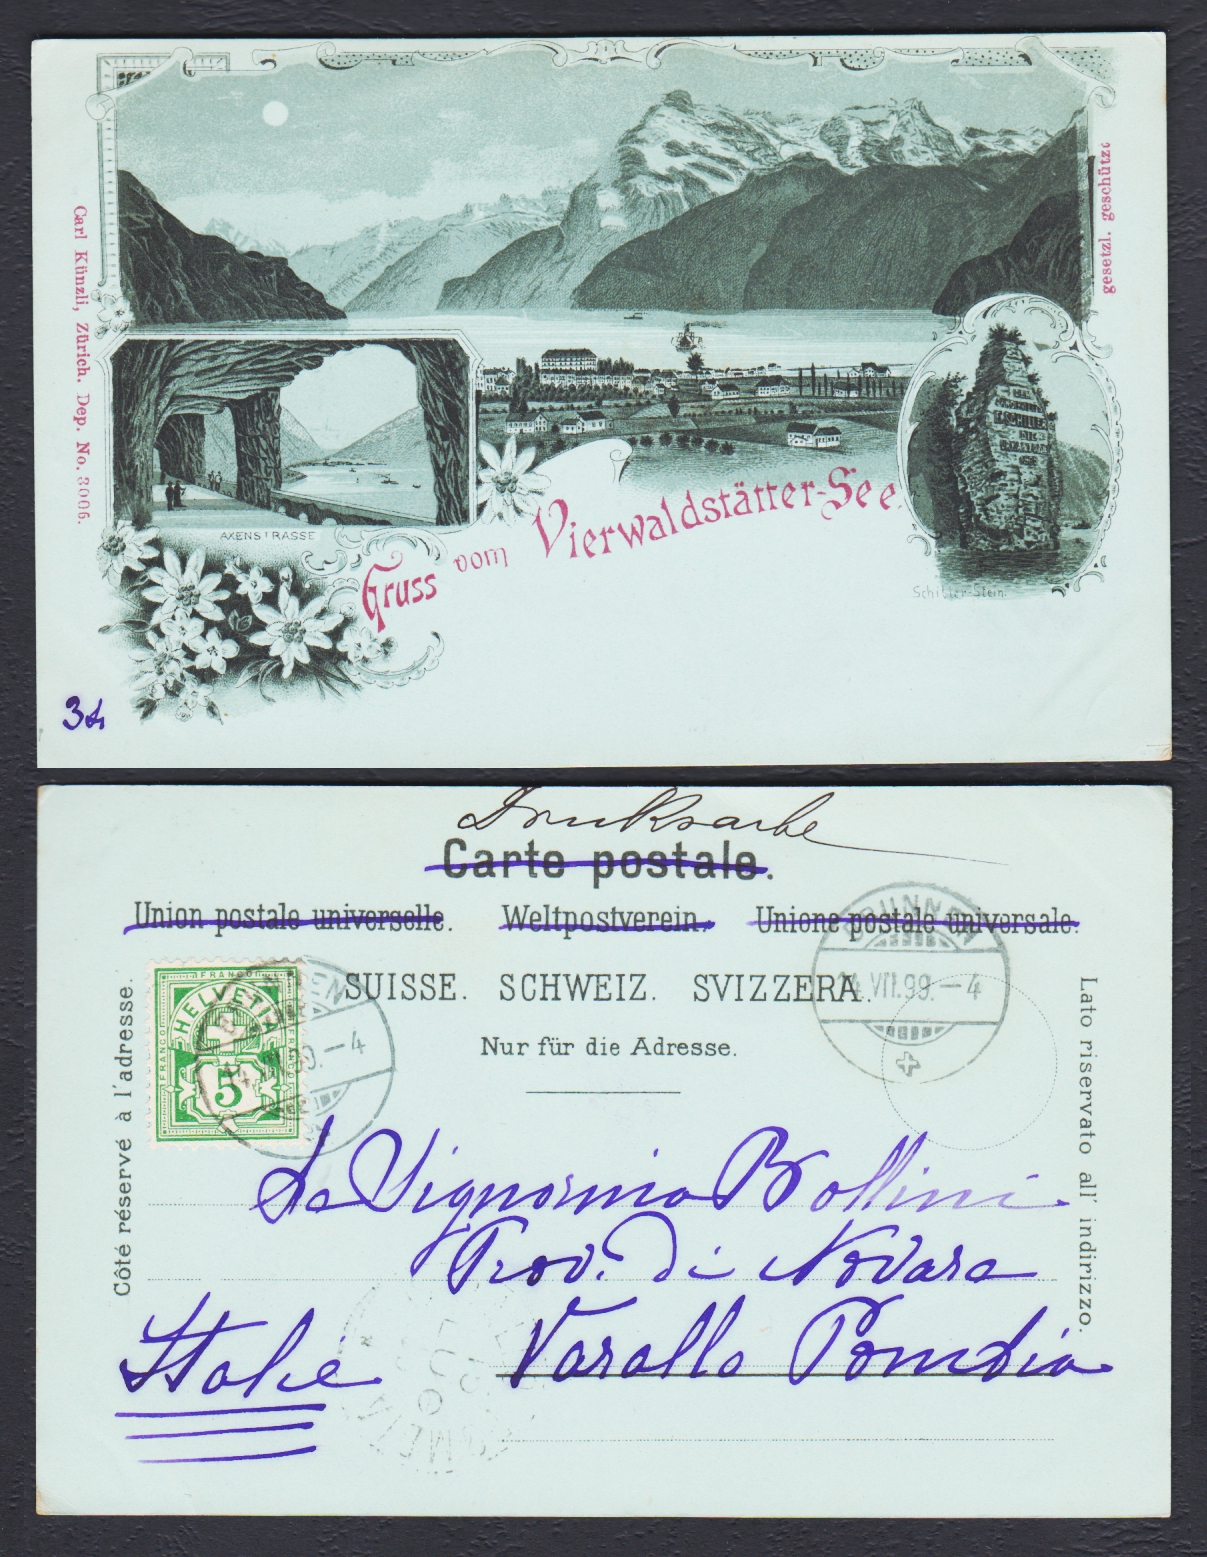 Carl Künzli, Zürich. Dep. No. 3006.
gesetzl. geschützt
AXENSTRASSE
Gruss vom Vierwaldstätter-See.
Schiller-Stein.
Drucksache
Carte postale.
Union postale universelle. Weltpostverein. Unione postale universale.
SUISSE. SCHWEIZ. SVIZZERA.
Nur für die Adresse.
Côté réservé à l'adresse.
Lato riservato all' indirizzo.
FRANCO
HELVETIA
FRANCO
FRANCO
5
BRUNNEN
VII.99.-4
BRUNNEN
-4
La Signorina Bollini
Prov. di Novara
Varallo Pombia
Italie
LUG